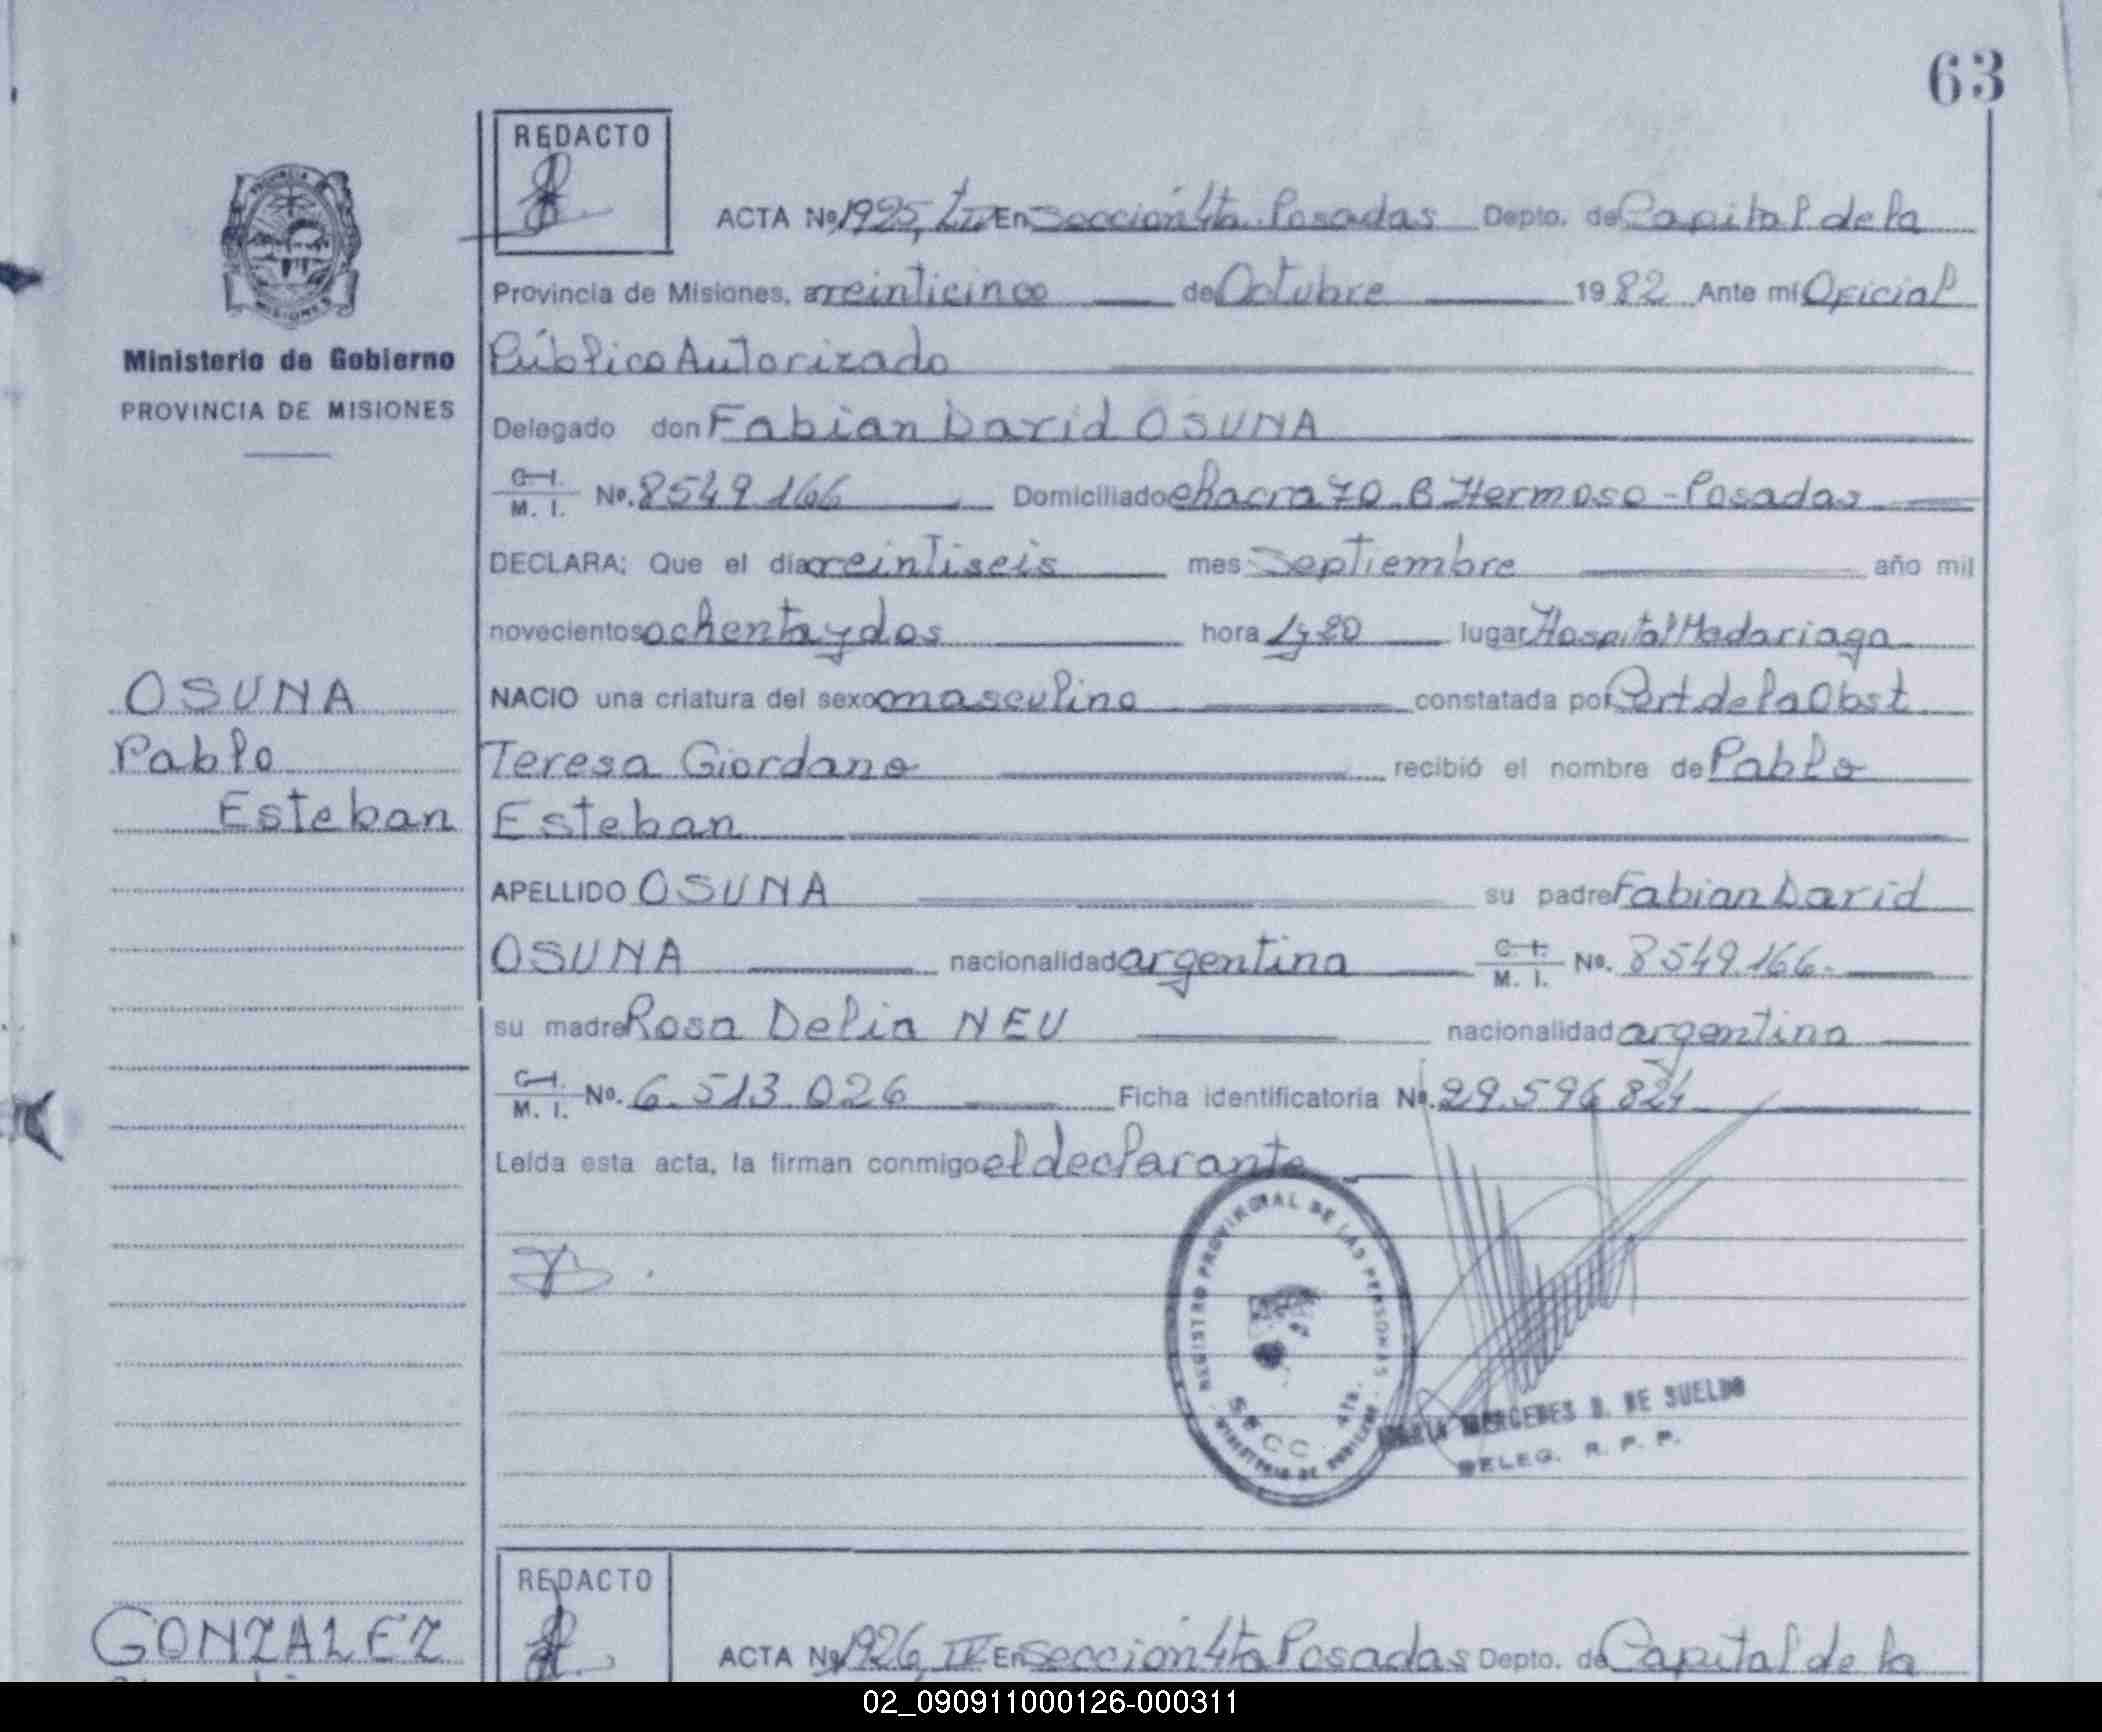 63
REDACTO
ACTA Nº 1925, IV En Sección 4ta Posadas Depto. de Capital de la
Provincia de Misiones, a veinticinco de Octubre 1982 Ante mi Oficial
Ministerio de Gobierno
Público Autorizado
PROVINCIA DE MISIONES
Delegado don Fabian David OSUNA
C. I.
M. I. Nº. 8549.166 Domiciliado chacra 70. B Hermoso - Posadas
DECLARA; Que el día veintiseis mes Septiembre año mil
novecientos ochenta y dos hora lugar Hospital Madariaga
OSUNA
NACIO una criatura del sexo masculino constatada por Cert. de la Obst
Pablo
Teresa Giordano recibió el nombre de Pablo
Esteban
Esteban
APELLIDO OSUNA su padre Fabian David
OSUNA nacionalidad argentina C. I. M. I. Nº. 8549.166.
su madre Rosa Delia NEU nacionalidad argentina
C. I.
M. I. Nº. 6.513.026 Ficha identificatoria Nº. 29.596.824
Leída esta acta, la firman conmigo el declarante
REGISTRO PROVINCIAL DE LAS PERSONAS
SECC. 4ta.
MERCEDES D. DE SUELDO
DELEG. R. P. P.
REDACTO
GONZALEZ
ACTA Nº 1926, IV En Sección 4ta Posadas Depto. de Capital de la
02_090911000126-000311